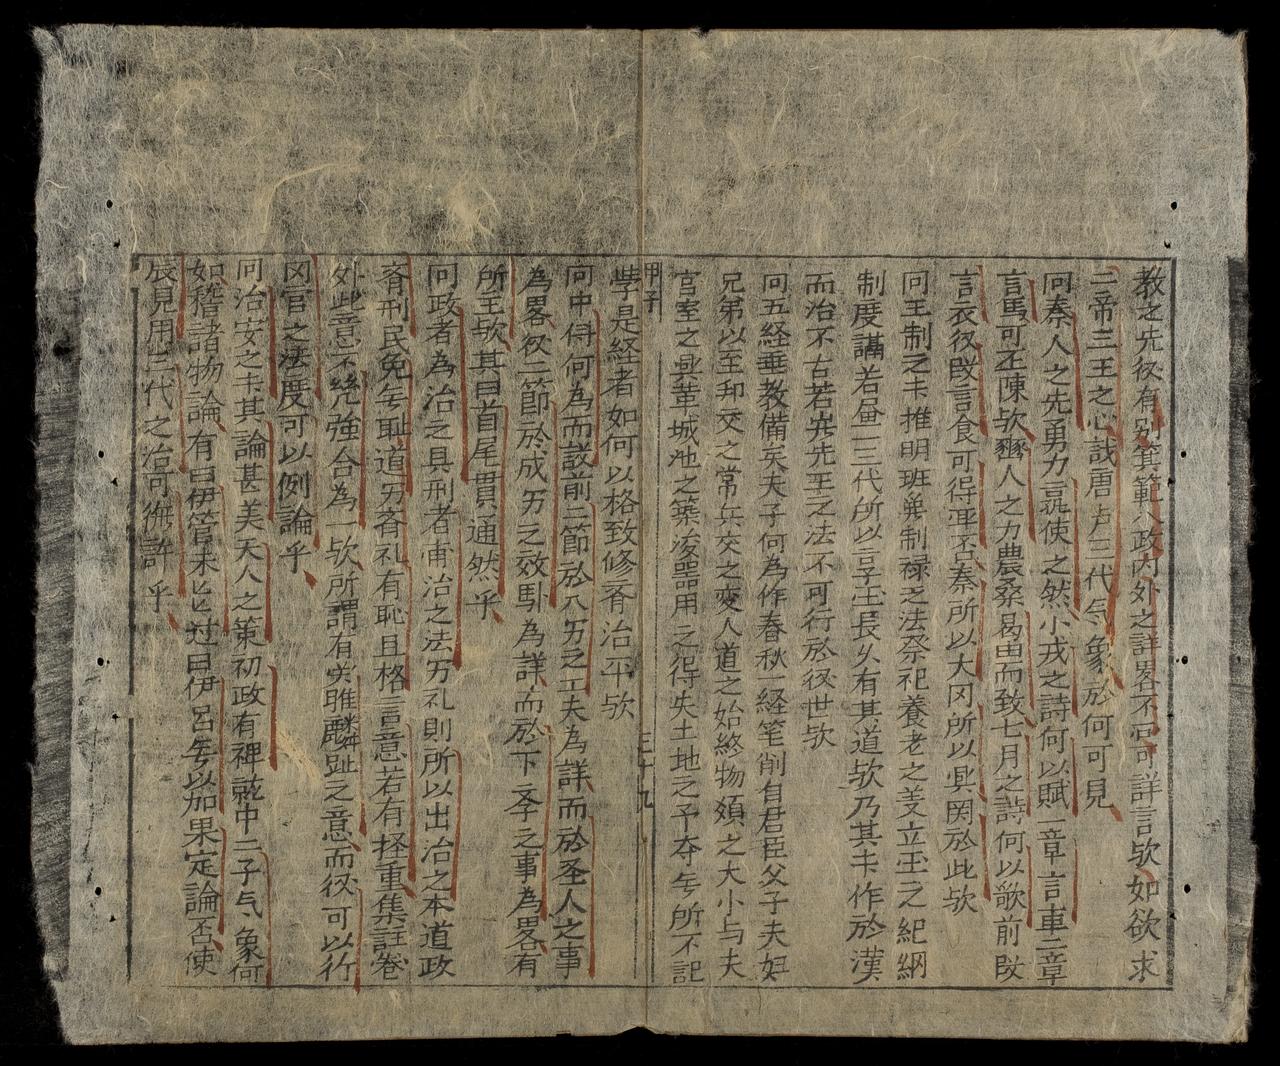 教之先後有別箕範八政內外之詳畧不可詳言欤如欲求
二帝三王之心哉唐虞三代气象於何可見
问秦人之先勇力说使之然小戎之詩何以賦一章言車二章
言馬可丕陳欤豳人之力農桑曷由而致七月之詩何以歌前段
言衣後段言食可得䦕否秦所以大冈所以興関於此欤
问王制之卡推明班爵制禄之法祭祀養老之义立国之紀綱
制度讅若昼一三代所以言子国長久有其道欤乃其卡作於漢
而治不古若岂先王之法不可行於後世欤
问五経垂教備矣夫子何為作春秋一経笔削自君臣父子夫妇
兄弟以至邦交之常兵交之变人道之始終物類之大小与夫
宫室之興革城池之築浚器用之得失土地之予夺无所不記
學是経者如何以格致修斉治平欤
甲子
三十九
问中得何為而設前二節於八万之工夫為詳而於圣人之事
為畧後二節於成万之效卧為詳而於下孝之事為畧有
所主欤其曰首尾貫通然乎
问政者為治之具刑者甫治之法万礼則所以出治之本道政
斉刑民免无耻道万斉礼有恥且格言意若有拯重集註卷
外些意不绕強合為一欤所謂有関睢麟趾之意而後可以行
冈官之法度可以例論乎
问治安之卡其論甚美天人之策初政有裨就中二子气象何
如稽諸物論有曰伊管未必过曰伊吕无以加果定論否使
辰見用三代之治可概許乎